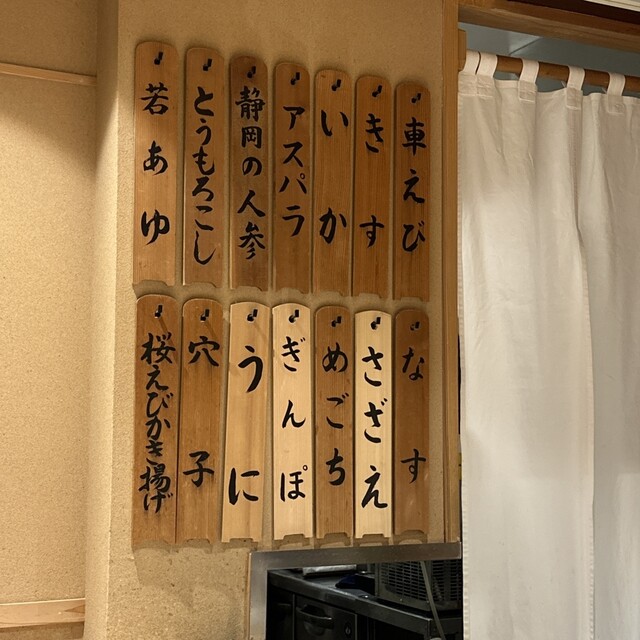 車えび
きす
いか
アスパラ
静岡の人参
とうもろこし
若あゆ
なす
さざえ
めごち
ぎんぽ
うに
穴子
桜えびかき揚げ